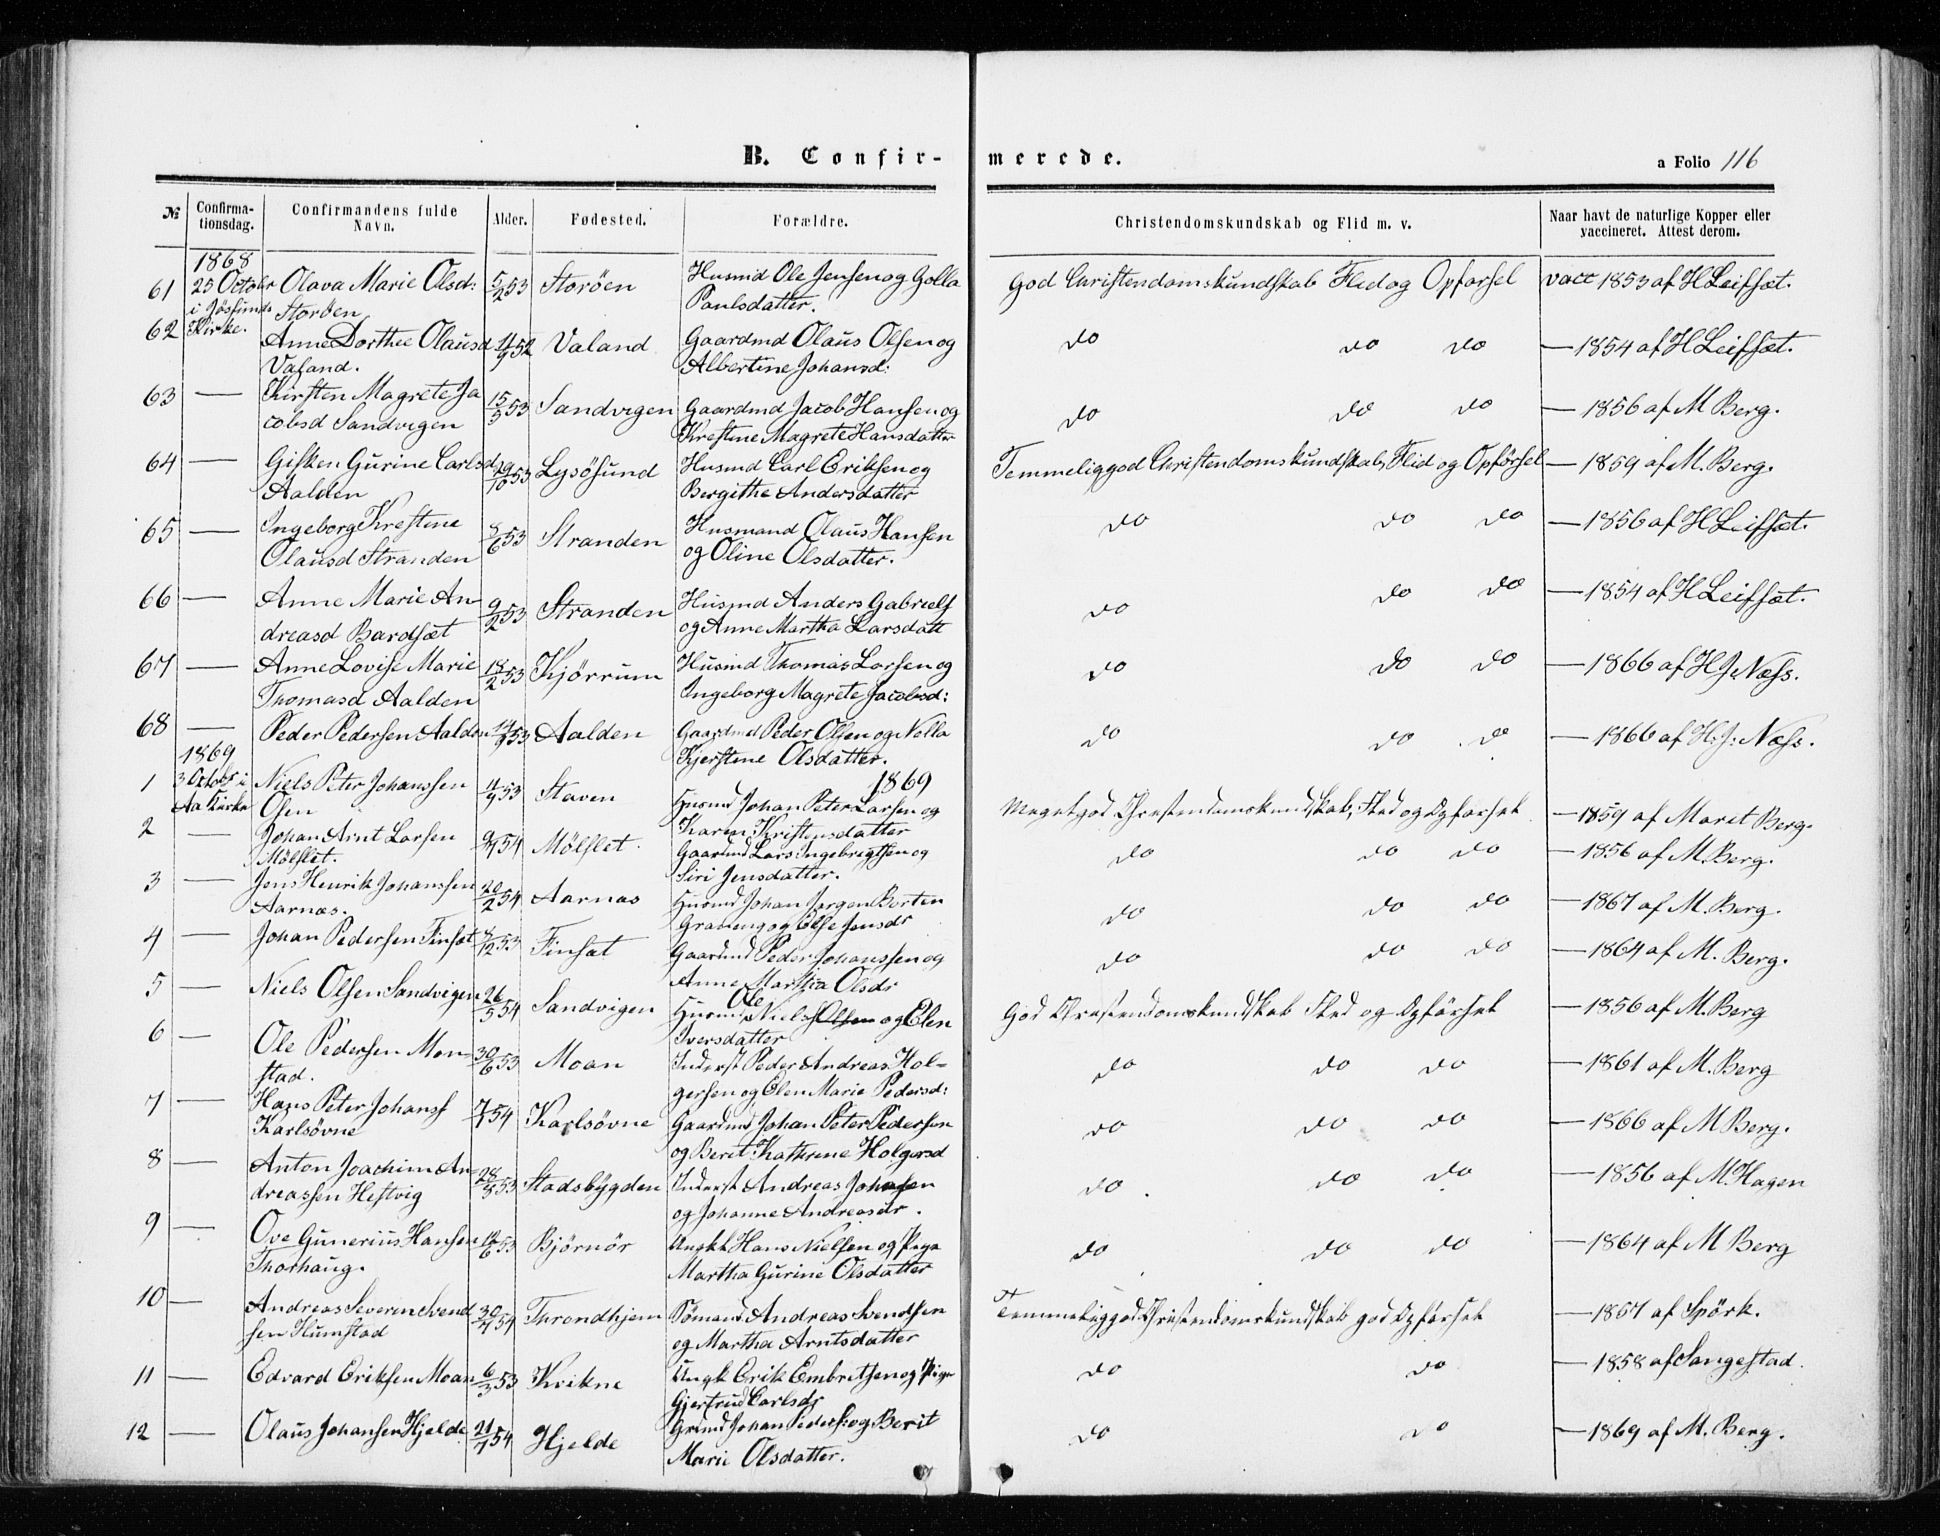 B. Confirmerede.
a Folio 116
№ Confirmationsdag. Confirmandens fulde Navn. Alder. Fødested. Forældre. Christendomskundskab og Flid m. v. Naar havt de naturlige Kopper eller vaccineret. Attest derom.
1868
61 25 October Olava Marie Olsd: 5/2 53 Storöen Husmd Ole Jensen og Golla God Christendomskundskab Flid og Opførsel vacc 1853 af H Leifsæt.
i Jössunds Storöen Paulsdatter.
62 Kirke. Anne Dorthee Olausd 11/9 52 Valand Gaardmd Olaus Olsen og do do do — 1854 af H Leifsæt.
Valand. Albertine Johansd:
63 — Kirsten Magrete Ja 15/3 53 Sandvigen Gaardmd Jacob Hansen og do do do — 1856 af M Berg.
cobsd Sandvigen Krestine Magrete Hansdatter
64 — Gisken Gurine Carlsd 29/10 53 Lysösund Husmd Carl Eriksen og Temmelig god Christendomskundskab, Flid og Opförsel — 1859 af M. Berg.
Aalden Bergithe Andersdatter
65 — Ingeborg Krestine 8/6 53 Stranden Husmand Olaus Hansen do do do — 1856 af H Leifsæt.
Olausd Stranden og Oline Olsdatter.
66 — Anne Marie An 9/2 53 Stranden Husmd Anders Gabriels do do do — 1854 af H Leifsæt.
dreasd Bardsæt og Anne Martha Larsdatt
67 — Anne Lovise Marie 18/2 53 Kjørrum Husmd Thomas Larsen og do do do — 1866 af H J Næss.
Thomasd Aalden Ingeborg Magrete Jacobsd:
68 — Peder Pedersen Aalden 14/9 53 Aalden Gaardmd Peder Olsen og Nolla do do do — 1866 af H: J: Næss.
1869 Kjerstine Olsdatter.
1869
1 3 Octobr i Niels Peter Johanssen 4/9 53 Staven Husmd Johan Peter Larsen og Meget god Christendomskundskab, Flid og Opførsel — 1859 af Maret Berg.
Aa Kirke Osen Karen Kristensdatter
2 — Johan Arnt Larsen 9/1 54 Mölslet Gaardmd Lars Ingebrigtsen og do do do — 1856 af M. Berg.
Mölslet. Siri Jensdatter.
3 — Jens Henrik Johanssen 20/2 54 Aarnas Husmd Johan Jørgen Borten do do do — 1867 af M. Berg.
Aarnæs. Graneng og Else Jensdr
4 — Johan Pedersen Finsæt 8/12 53 Finsæt Gaardmd Peder Johanssen og do do do — 1864 af M. Berg.
Anne Martha Olsdr
5 — Niels Olsen Sandvigen 26/5 54 Sandvigen Husmd Ole Niels Olsen og Elen God Christendomskundskab Flid og Opførsel — 1856 af M. Berg
Iversdatter
6 — Ole Pedersen Mon- 30/6 53 Moan Inderst Peder Andreas Hol- do do do — 1861 af M. Berg
stad. gersen og Elen Marie Pedersd:
7 — Hans Peter Johanss 7/1 54 Karlsövne Gaardmd Johan Peter Pedersen do do do — 1866 af M Berg.
Karlsövne og Beret Kathrine Holgersd
8 — Anton Joachim An- 28/8 53 Stadsbygden Inderst Andreas Johnsen do do do — 1856 af M. Hagen
dreassen Hestvig og Johanne Andreasdr.
9 — Ove Gunerius Hansen 14/6 53 Bjørnör Ungk Hans Nielsen og Pige do do do — 1864 af M Berg
Thorhaug. Martha Gurine Olsdatter
10 — Andreas Severin Svend 30/4 54 Throndhjem Sömand Andreas Svendsen Temmelig god Christendomskundskab god Opförsel — 1857 af Spörk.
sen Humstad og Martha Arntsdatter
11 — Edvard Eriksen Moan 6/3 53 Kvikne Ungk Erik Embretsen og Pige do do — 1858 af Sangestad.
Gjertrud Carlsdr
12 — Olaus Johansen Hjelde 21/1 54 Hjelde Grdmd Johan Peders: og Berit do do — 1869 af M. Berg.
Marie Olsdatter.